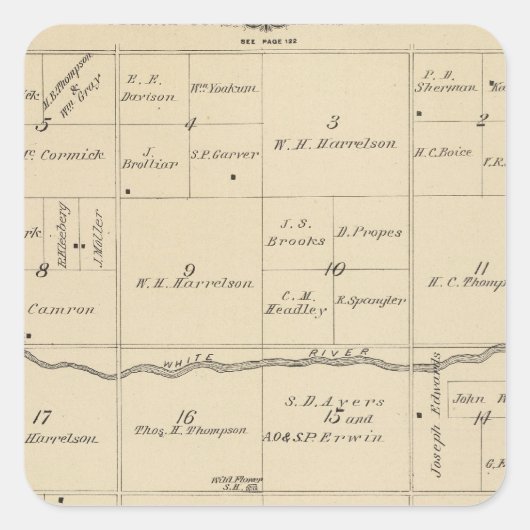 SEE PAGE 122
M.B. Thompson
&
Wm Gray
5
Mc. Cormick
E. E.
Davison
Wm Yoakum
4
J.
Brolliar
S.P. Garver
3
W. H. Harrelson
P. D.
Sherman
2
H.C. Boice
R. Kleeberg
J. Moller
8
Camron
9
W. H. Harrelson
J. S.
Brooks
D. Propes
10
C. M.
Headley
R. Spangler
11
H. C. Thomp
WHITE RIVER
17
Harrelson
16
Thos. H. Thompson
Wild Flower
S.H.
S. D. Ayers
15 and
A.O. & S.P. Erwin
Joseph Edwards
John
14